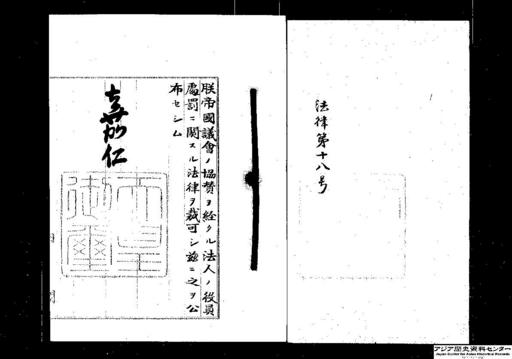 法律第十八号
朕帝國議會ノ協賛ヲ經タル法人ノ役員
處罰ニ關スル法律ヲ裁可シ茲ニ之ヲ公
布セシム
嘉仁
天皇
御璽
アジア歴史資料センター
Japan Center for Asian Historical Records